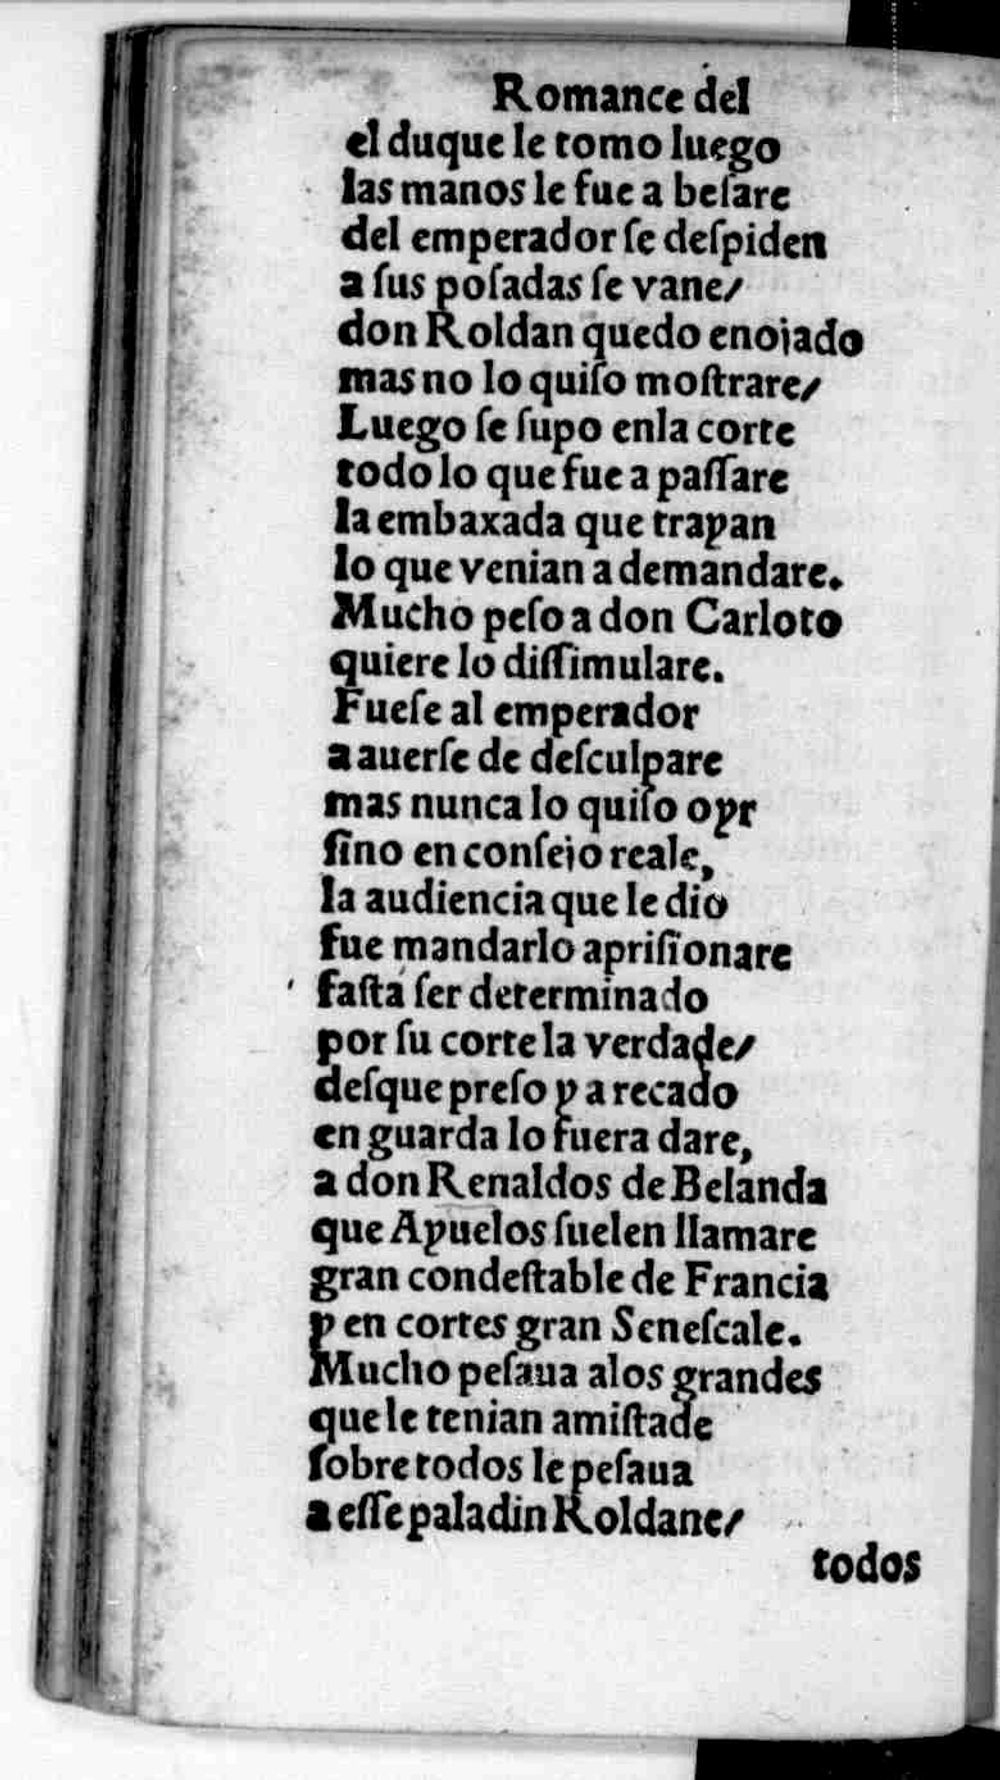 Romance del
el duque le tomo luego
las manos le fue a beſare
del emperador ſe deſpiden
a ſus poſadas ſe vane/
don Roldan quedo enojado
mas no lo quiſo moſtrare/
Luego ſe ſupo enla corte
todo lo que fue a paſſare
la embaxada que trayan
lo que venian a demandare.
Mucho peſo a don Carloto
quiere lo diſſimulare.
Fueſe al emperador
a auerſe de deſculpare
mas nunca lo quiſo oyr
ſino en conſejo reale,
la audiencia que le dio
fue mandarlo apriſionare
faſta ſer determinado
por ſu corte la verdade/
deſque preſo y a recado
en guarda lo fuera dare,
a don Renaldos de Belanda
que Ayuelos ſuelen llamare
gran condeſtable de Francia
y en cortes gran Seneſcale.
Mucho peſaua alos grandes
que le tenian amiſtade
ſobre todos le peſaua
a eſſe paladin Roldane/
todos